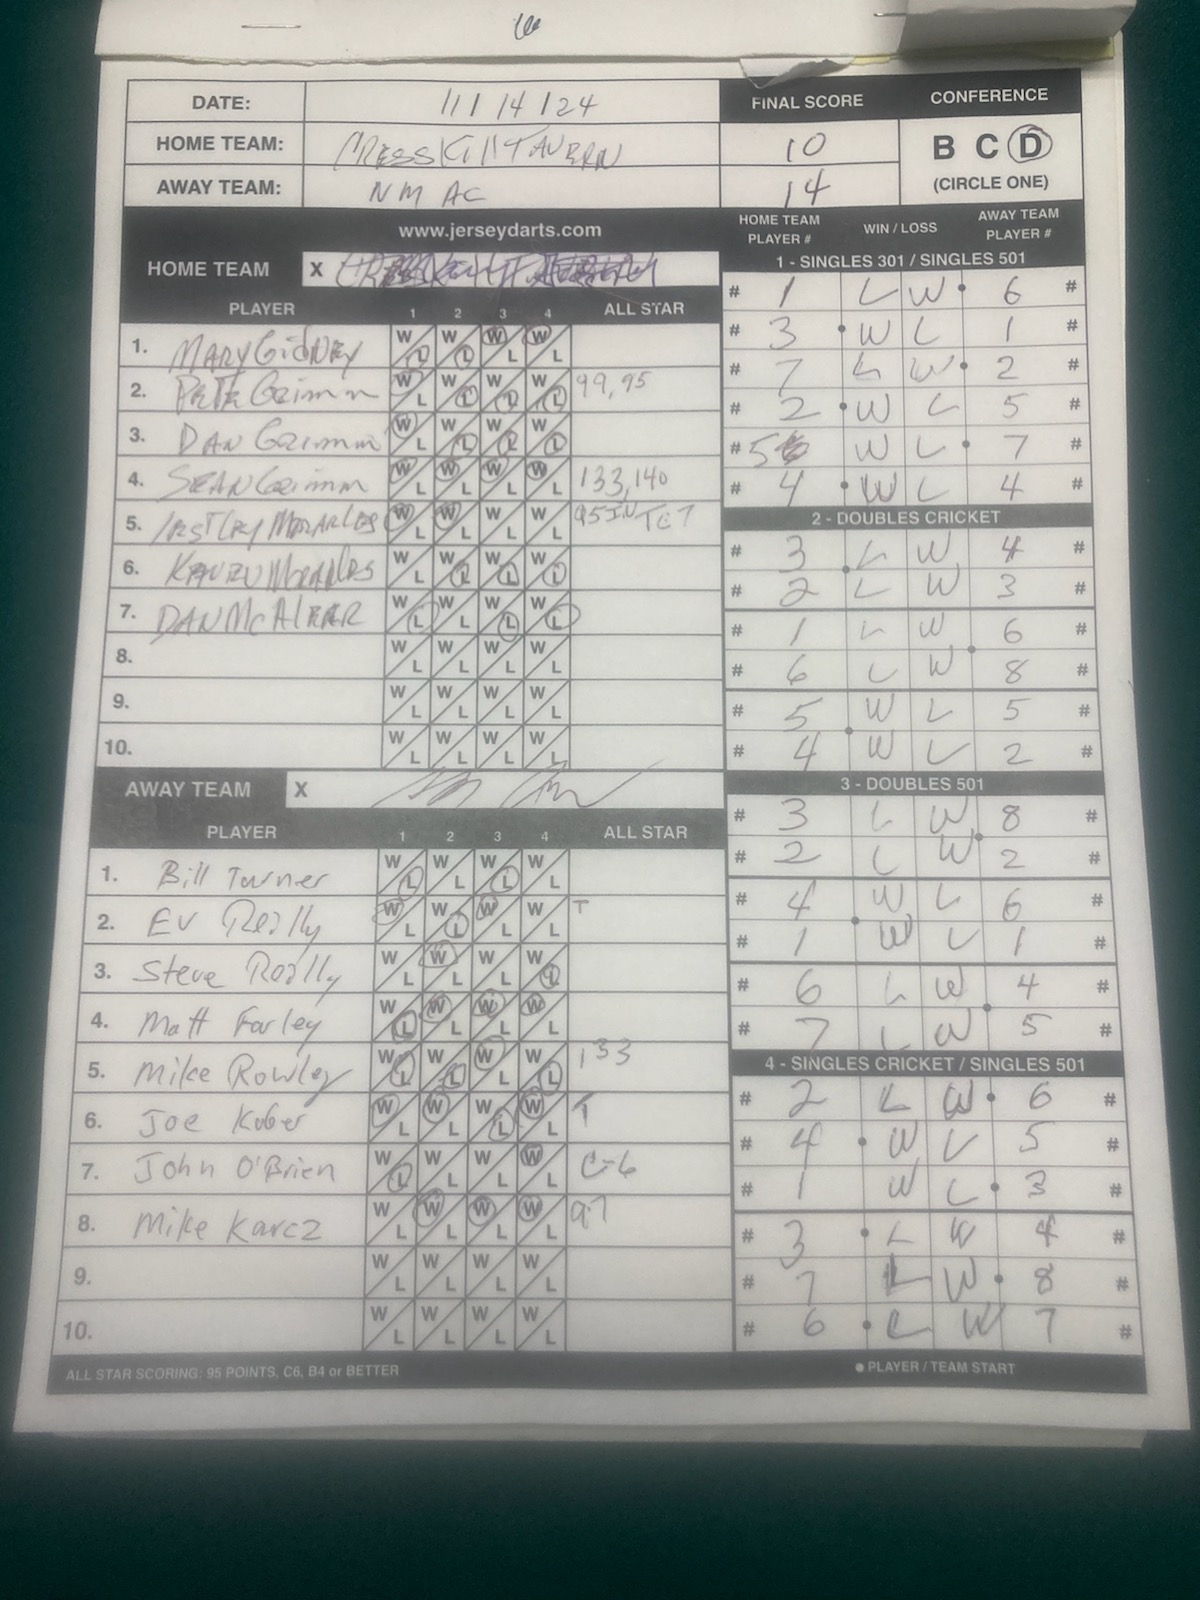 DATE: 11/14/24 FINAL SCORE CONFERENCE
HOME TEAM: CRESSKILL TAVERN 10 B C D
AWAY TEAM: NMAC 14 (CIRCLE ONE)
www.jerseydarts.com HOME TEAM PLAYER # WIN / LOSS AWAY TEAM PLAYER #
HOME TEAM X
PLAYER 1 2 3 4 ALL STAR
1. MARY GIDNEY W L W L W L W L
2. PETE Grimm W L W L W L W L 99, 95
3. DAN Grimm W L W L W L W L
4. SEAN Grimm W L W L W L W L 133, 140
5. W L W L W L W L 95
6. W L W L W L W L
7. DAN McAleer W L W L W L W L
8. W L W L W L W L
9. W L W L W L W L
10. W L W L W L W L
AWAY TEAM X
PLAYER 1 2 3 4 ALL STAR
1. Bill Turner W L W L W L W L
2. EV Reilly W L W L W L W L T
3. Steve Reilly W L W L W L W L
4. Matt Farley W L W L W L W L
5. Mike Rowley W L W L W L W L 133
6. Joe Kuber W L W L W L W L T
7. John O'Brien W L W L W L W L C-6
8. Mike Karcz W L W L W L W L 97
9. W L W L W L W L
10. W L W L W L W L
ALL STAR SCORING: 95 POINTS, C6, B4 or BETTER
1 - SINGLES 301 / SINGLES 501
# 1 L W 6 #
# 3 W L 1 #
# 7 L W 2 #
# 2 W L 5 #
# 5 W L 7 #
# 4 W L 4 #
2 - DOUBLES CRICKET
# 3 L W 4 #
# 2 L W 3 #
# 1 L W 6 #
# 6 L W 8 #
# 5 W L 5 #
# 4 W L 2 #
3 - DOUBLES 501
# 3 L W 8 #
# 2 L W 2 #
# 4 W L 6 #
# 1 W L 1 #
# 6 L W 4 #
# 7 L W 5 #
4 - SINGLES CRICKET / SINGLES 501
# 2 L W 6 #
# 4 W L 5 #
# 1 W L 3 #
# 3 L W 4 #
# 7 L W 8 #
# 6 L W 7 #
● PLAYER / TEAM START